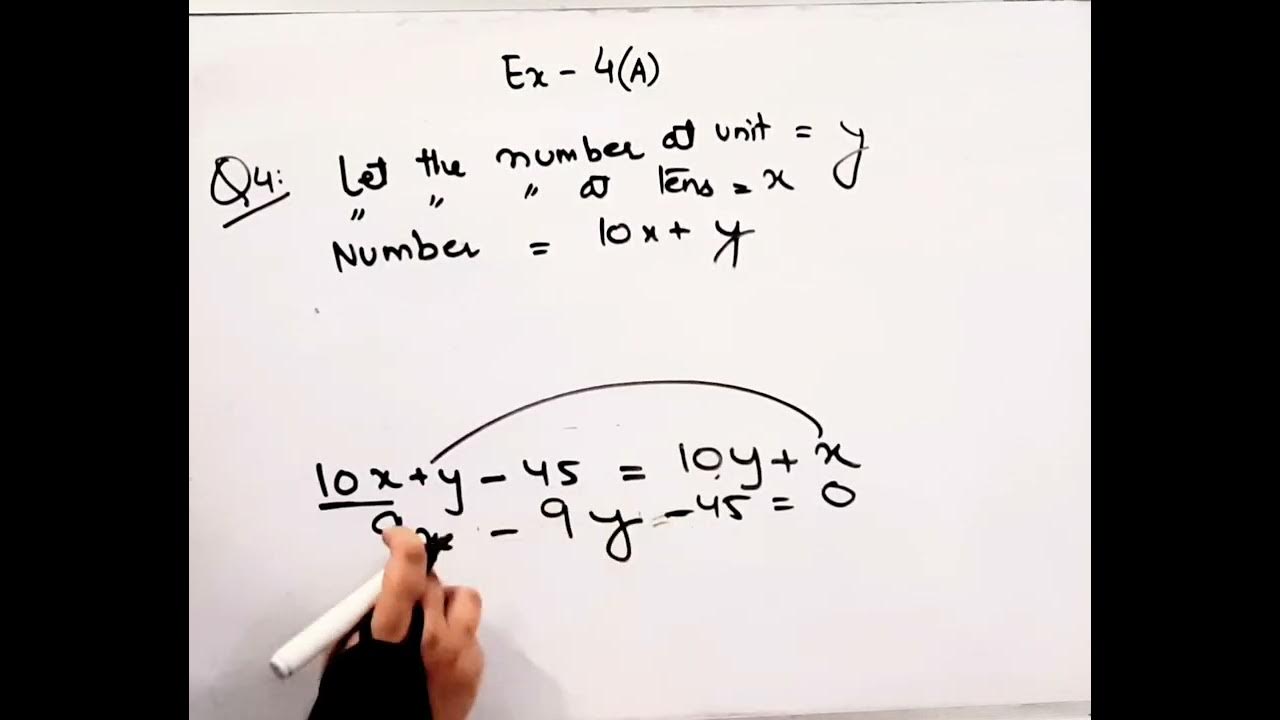 Ex - 4(A)
Q4: Let the number at unit = y
" " " at tens = x
Number = 10x + y
10x + y - 45 = 10y + x
9x - 9y - 45 = 0